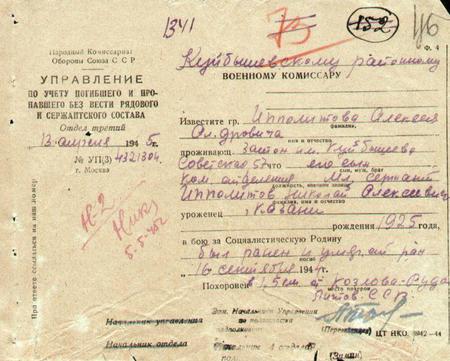 1341
73
152
Ф. 4
Народный Комиссариат
Обороны Союза ССР
УПРАВЛЕНИЕ
ПО УЧЕТУ ПОГИБШЕГО И ПРО-
ПАВШЕГО БЕЗ ВЕСТИ РЯДОВОГО
И СЕРЖАНТСКОГО СОСТАВА
Отдел третий
13 апреля 1945 г.
№ УП(3) 4321304
г. Москва
При ответе ссылаться на наш номер
Куйбышевскому районному
ВОЕННОМУ КОМИССАРУ
Известите гр. Ипполитова Алексея
фамилия,
Ал-дровича
имя и отчество
проживающ. Затон им. Куйбышева
Советская 57 что его сын
сын, муж, брат
ком. отделения Мл. сержант
должность, военное звание
Ипполитов Николай Алексеевич
фамилия, имя и отчество
уроженец г. Казани
рождения 1925 года,
в бою за Социалистическую Родину
был ранен и умер от ран
"16 сентября 1944
Похоронен в 1,5 км Козлова-Руда
Литов. ССР
Начальник управления
Зам. Начальника Управления
Начальник отдела
Начальник 4 отдела
ЦТ НКО. 0942—44